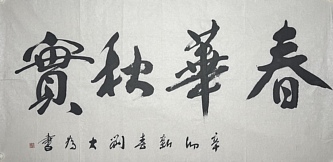 春華秋實
辛卯新春劉大為書